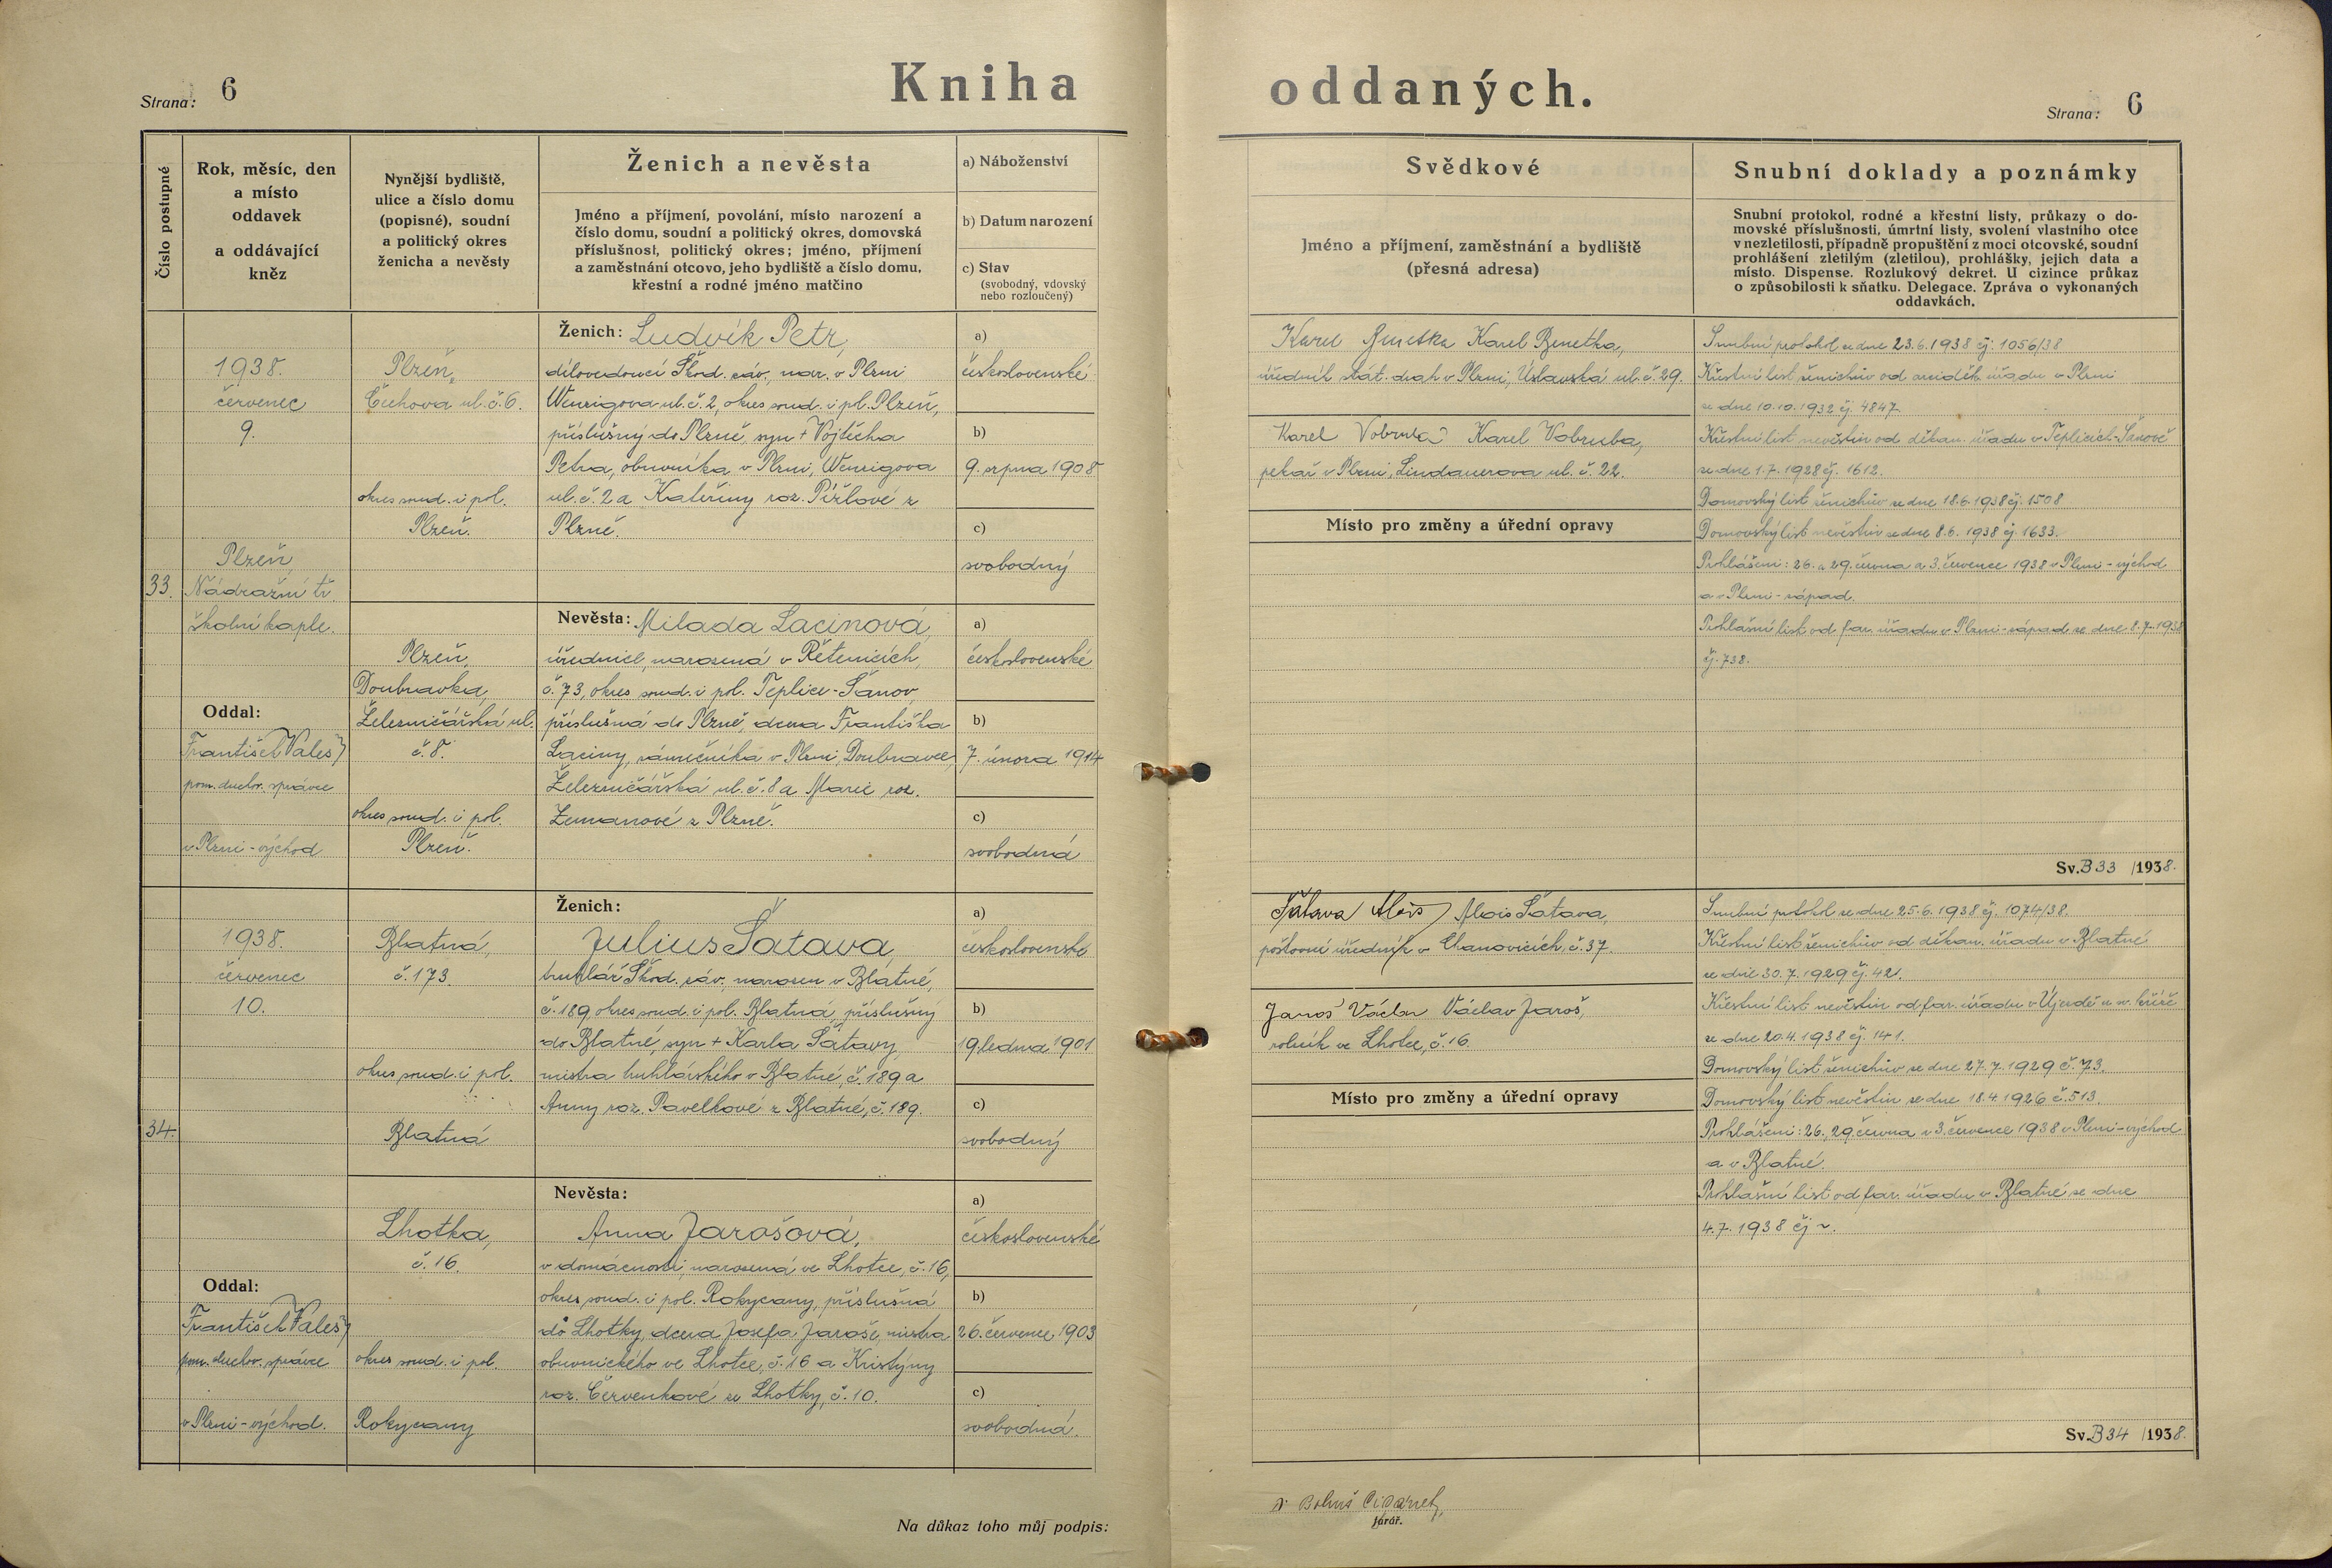 Strana: 6
Kniha oddaných.
Strana: 6
Číslo postupné
Rok, měsíc, den
a místo
oddavek
a oddávající
kněz
Nynější bydliště,
ulice a číslo domu
(popisné), soudní
a politický okres
ženicha a nevěsty
Ženich a nevěsta
Jméno a příjmení, povolání, místo narození a
číslo domu, soudní a politický okres, domovská
příslušnost, politický okres; jméno, příjmení
a zaměstnání otcovo, jeho bydliště a číslo domu,
křestní a rodné jméno matčino
a) Náboženství
b) Datum narození
c) Stav
(svobodný, vdovský
nebo rozloučený)
Svědkové
Jméno a příjmení, zaměstnání a bydliště
(přesná adresa)
Snubní doklady a poznámky
Snubní protokol, rodné a křestní listy, průkazy o do-
movské příslušnosti, úmrtní listy, svolení vlastního otce
v nezletilosti, případně propuštění z moci otcovské, soudní
prohlášení zletilým (zletilou), prohlášky, jejich data a
místo. Dispense. Rozlukový dekret. U cizince průkaz
o způsobilosti k sňatku. Delegace. Zpráva o vykonaných
oddavkách.
33.
1938.
červenec
9.
Plzeň,
Nádražní tř.
školní kaple.
Oddal:
František Valeš
pom. duchov. správce
v Plzni-východ
Plzeň,
Čechova ul. č. 6.
okres soud. i pol.
Plzeň.
Ženich: Ludvík Petr,
dílovedoucí Škod. záv., nar. v Plzni
Wenzigova ul. č. 2, okres soud. i pol. Plzeň,
příslušný do Plzně, syn + Vojtěcha
Petra, obuvníka v Plzni, Wenzigova
ul. č. 2 a Kateřiny roz. Pížlové z
Plzně.
a)
československé
b)
9. srpna 1908
c)
svobodný
Plzeň,
Doubravka,
Železničářská ul.
č. 8.
okres soud. i pol.
Plzeň.
Nevěsta: Milada Lacinová,
úřednice, narozená v Řetenicích,
č. 73, okres soud. i pol. Teplice-Šanov,
příslušná do Plzně, dcera Františka
Laciny, zámečníka v Plzni, Doubravce,
Železničářská ul. č. 8 a Marie roz.
Zemanové z Plzně.
a)
československé
b)
7. února 1914
c)
svobodná
Karel Benetka Karel Benetka,
úředník stát. drah v Plzni, Úslavská ul. č. 29.
Karel Vobruba Karel Vobruba,
pekař v Plzni, Lindauerova ul. č. 22.
Místo pro změny a úřední opravy
Snubní protokol ze dne 23.6.1938 čj. 1056/38
Křestní list ženichův od arciděk. úřadu v Plzni
ze dne 10.10.1932 čj. 4847.
Křestní list nevěstin od děkan. úřadu v Teplicích-Šanově
ze dne 1.7.1928 čj. 1612.
Domovský list ženichův ze dne 18.6.1938 čj. 1508
Domovský list nevěstin ze dne 8.6.1938 čj. 1633.
Prohlášeni: 26. a 29. června a 3. července 1938 v Plzni-východ
a v Plzni-západ.
Prohlášní list od far. úřadu v Plzni-západ ze dne 8.7.1938
čj. 738.
Sv. B 33 /1938.
34.
1938.
červenec
10.
Oddal:
František Valeš
pom. duchov. správce
v Plzni-východ.
Blatná,
č. 173.
okres soud. i pol.
Blatná
Ženich:
Julius Šatava,
truhlář Škod. záv., narozen v Blatné,
č. 189, okres soud. i pol. Blatná, příslušný
do Blatné, syn + Karla Šatavy,
mistra truhlářského v Blatné, č. 189 a
Anny roz. Pavelkové z Blatné, č. 189.
a)
československé
b)
19. ledna 1901
c)
svobodný
Lhotka,
č. 16.
okres soud. i pol.
Rokycany
Nevěsta:
Anna Jarošová,
v domácnosti, narozená ve Lhotce, č. 16,
okres soud. i pol. Rokycany, příslušná
do Lhotky, dcera Josefa Jaroše, mistra
obuvnického ve Lhotce, č. 16 a Kristýny
roz. Červenkové ze Lhotky, č. 10.
a)
československé
b)
26. července 1903
c)
svobodná.
Šatava Alois Alois Šatava,
poštovní úředník v Chanovicích, č. 37.
Jaroš Václav Václav Jaroš,
rolník ve Lhotce, č. 16.
Místo pro změny a úřední opravy
Snubní protokol ze dne 25.6.1938 čj. 1074/38.
Křestní list ženichův od děkan. úřadu v Blatné
ze dne 30.7.1929 čj. 421.
Křestní list nevěstin od far. úřadu v Újezdě u sv. kříže
ze dne 20.4.1938 čj. 141.
Domovský list ženichův ze dne 27.7.1929 č. 73.
Domovský list nevěstin ze dne 18.4.1926 č. 513.
Prohlášeni: 26., 29. června v 3. července 1938 v Plzni-východ
a v Blatné.
Prohlášní list od far. úřadu v Blatné ze dne
4.7.1938 čj ~.
Sv. B 34 /1938.
Na důkaz toho můj podpis:
farář.